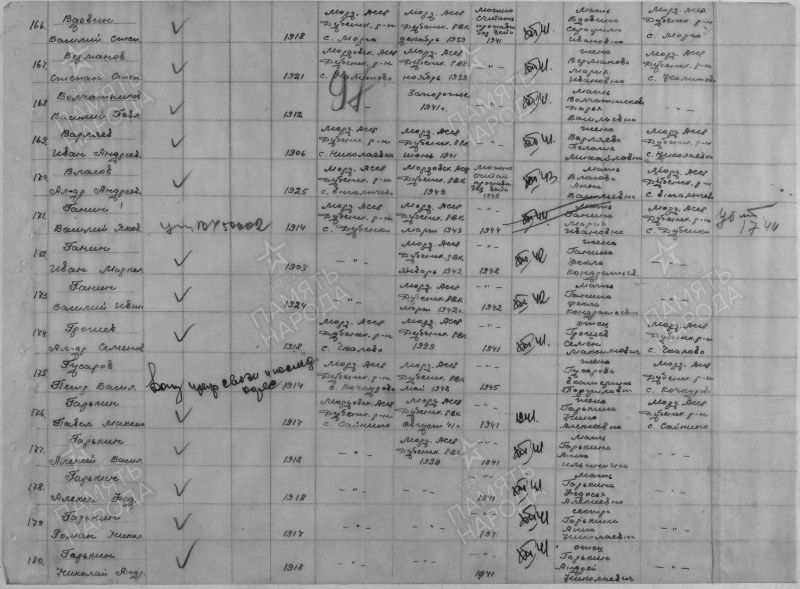 166. Вдовин
Василий Степ. 1918
Морд. Асср
Дубенск. р-н
с. Морга
Морд. Асср
Дубенск. РВК
декабрь 1939
можно
считать
пропавш.
без вести
1941
мать
Вдовина
Серафима
Ивановна
Морд. Асср
Дубенск. р-н
с. Морга
167. Верманов
Степан Степ. 1921
Мордовск. Асср
Дубенск. р-н
Морд. Асср
Дубенск. РВК
ноябрь 1939
- " -
жена
Верманова
Мария
Ивановна
Морд. Асср
Дубенск. р-н
168. Волчатников
Василий Гавр. 1912
- " -
Запорожье
1941 г.
- " -
мать
Волчатникова
Дарья
Васильевна
- " -
169. Варляев
Иван Андреев. 1906
Морд. Асср
Дубенск. р-н
с. Николаевка
Морд. Асср
Дубенск. РВК
июнь 1941
- " -
жена
Варляева
Михайловна
Морд. Асср
Дубенск. р-н
с. Николаевка
170. Власов
Ал-др Андреев. 1925
Морд. Асср
Дубенск. р-н
Мордовск. Асср
Дубенск. РВК
1943
можно
считать
пропавш.
без вести
1943
мать
Власова
Анна
Васильевна
Морд. Асср
Дубенск. р-н
171. Ганин
Василий Яков. 1914
Морд. Асср
Дубенск. р-н
с. Дубенки
Морд. Асср
Дубенск. РВК
март 1943
- " -
1944
мать
Ганина
Мария
Ивановна
Морд. Асср
Дубенск. р-н
с. Дубенки
172. Ганин
Иван Маркел. 1903
- " -
Морд. Асср
Дубенск. РВК
январь 1942
- " -
1942
жена
Ганина
Фекла
Кондратьев.
- " -
173. Ганин
Василий Иван. 1924
- " -
Морд. Асср
Дубенск. РВК
март 1942 г.
- " -
1942
мать
Ганина
Фекла
Кондратьевн.
- " -
174. Грошев
Ал-др Семенов. 1918
Морд. Асср
Дубенск. р-н
с. Чкалово
Морд. Асср
Дубенск. РВК
1939
- " -
1941
отец
Грошев
Семен
Максимович
Морд. Асср
Дубенск. р-н
с. Чкалово
175. Гусаров
Петр Васил. 1914
Морд. Асср
Дубенск. р-н
с. Кочкурово
Морд. Асср
Дубенск. РВК
май 1942
- " -
1945
жена
Гусарова
Екатерина
Морд. Асср
Дубенск. р-н
с. Кочкурово
176. Гарькин
Павел Максим. 1917
Мордовск. Асср
Дубенск. р-н
с. Сайнино
Морд. Асср
Дубенск. РВК
август 41 г.
- " -
1941
жена
Гарькина
Нина
Алексеевна
Морд. Асср
Дубенск. р-н
с. Сайнино
177. Гарькин
Алексей Васил. 1918
- " -
Морд. Асср
Дубенск. РВК
1939
- " -
1941
мать
Гарькина
Анна
Ильинична
- " -
178. Гарькин
Алексей Фед. 1918
- " -
- " -
- " -
1941
мать
Гарькина
Федосья
Алексеевна
- " -
179. Гарькин
Роман Никол. 1917
- " -
- " -
- " -
1941
сестра
Гарькина
Анна
Николаевна
- " -
180. Гарькин
Николай Андр. 1918
- " -
- " -
- " -
1941
отец
Гарькин
Андрей
Николаевич
- " -
ПАМЯТЬ
НАРОДА